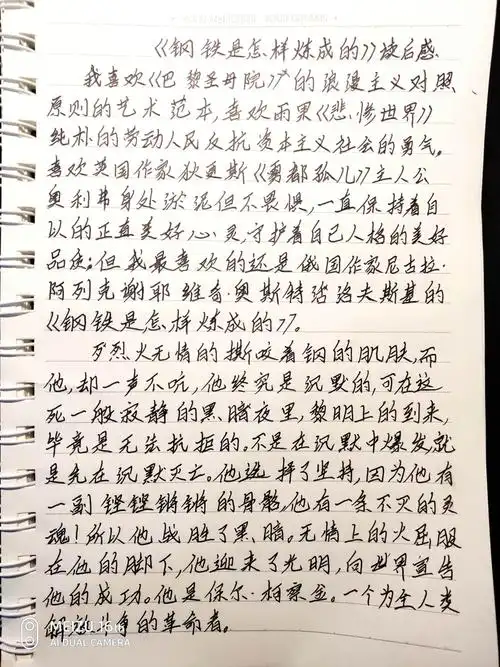 《钢铁是怎样炼成的》读后感
我喜欢《巴黎圣母院》的浪漫主义对照
原则的艺术范本,喜欢雨果《悲惨世界》
纯朴的劳动人民反抗资本主义社会的勇气。
喜欢英国作家狄更斯《雾都孤儿》主人公
奥利弗身处淤泥但不畏惧,一直保持着自
以的正直美好心灵,守护着自己人格的美好
品质;但我最喜欢的还是俄国作家尼古拉·
阿列克谢耶维奇·奥斯特洛夫斯基的
《钢铁是怎样炼成的》。
烈火无情的撕咬着钢的肌肤,而
他,却一声不吭,他终究是沉默的,可在这
死一般寂静的黑暗夜里,黎明上的到来,
毕竟是无法抗拒的。不是在沉默中爆发,就
是先在沉默灭亡。他选择了坚持,因为他有
一副铿铿锵锵的骨骼,他有一条不灭的灵
魂!所以他战胜了黑暗。无情上的火屈服
在他的脚下,他迎来了光明,向世界宣告
他的成功。他是保尔·柯察金。一个为全人类
解放斗争的革命者。
AI DUAL CAMERA